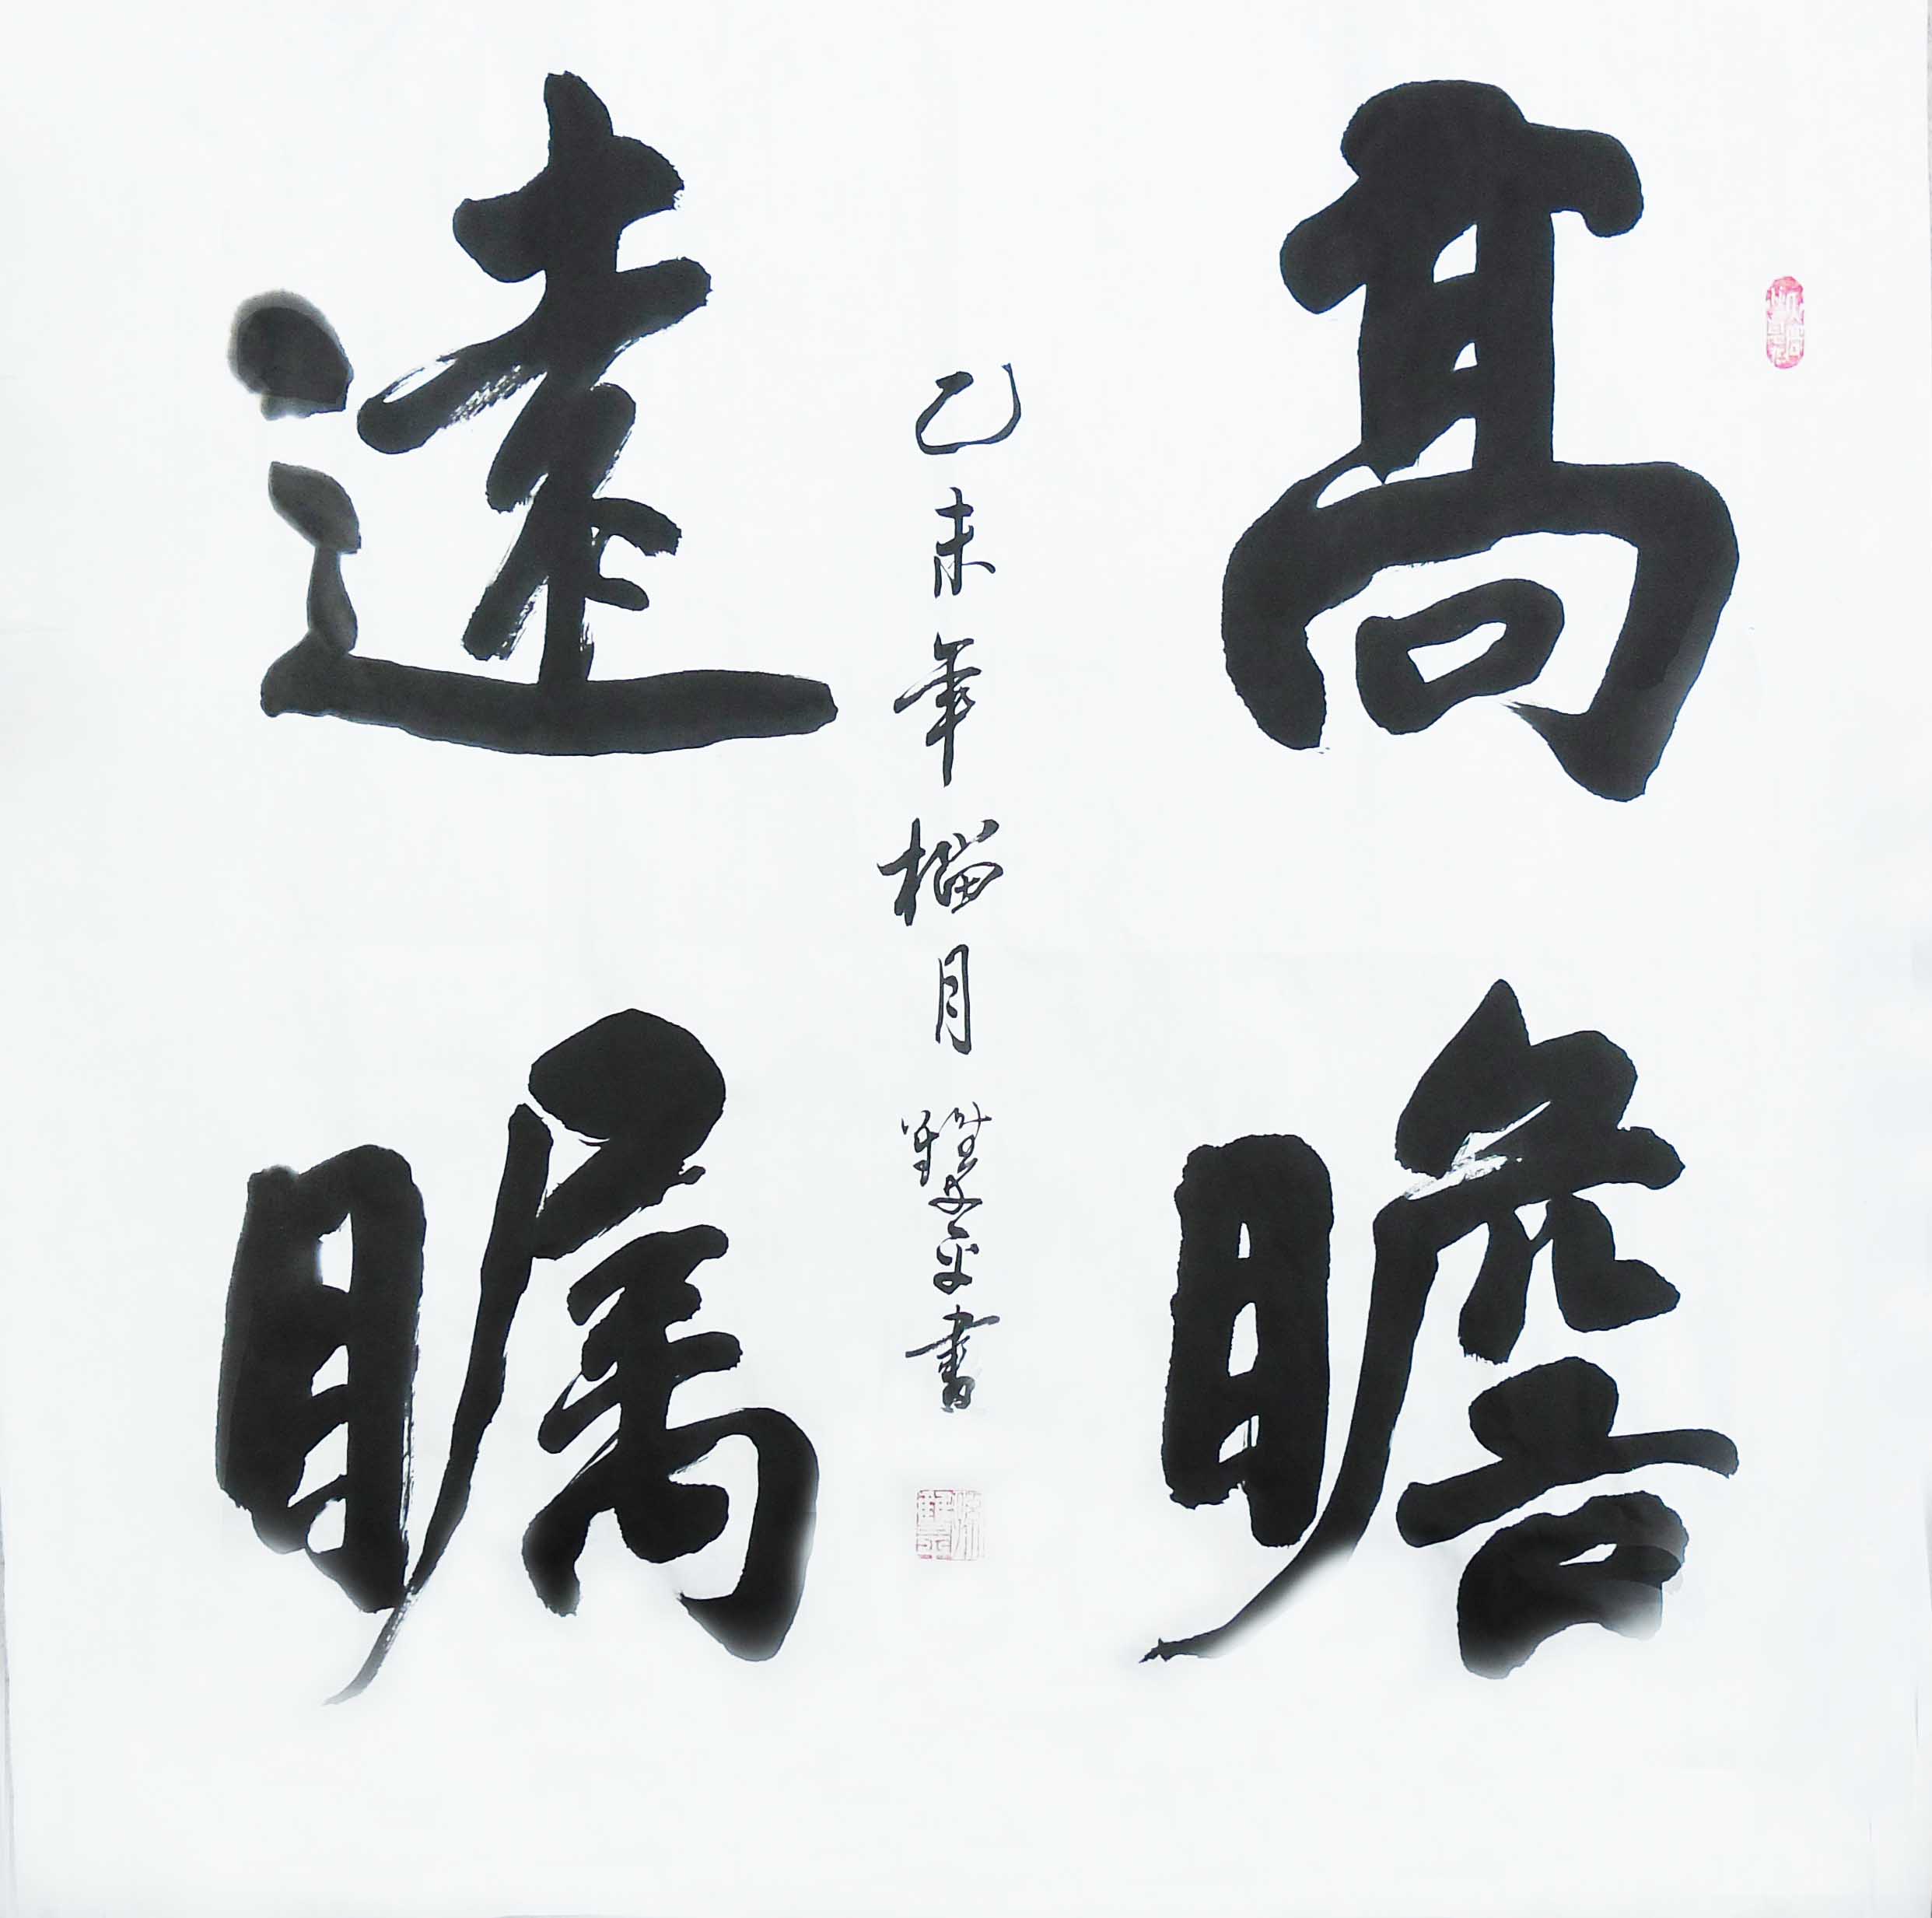 高瞻
遠矚
乙未年榴月
平書